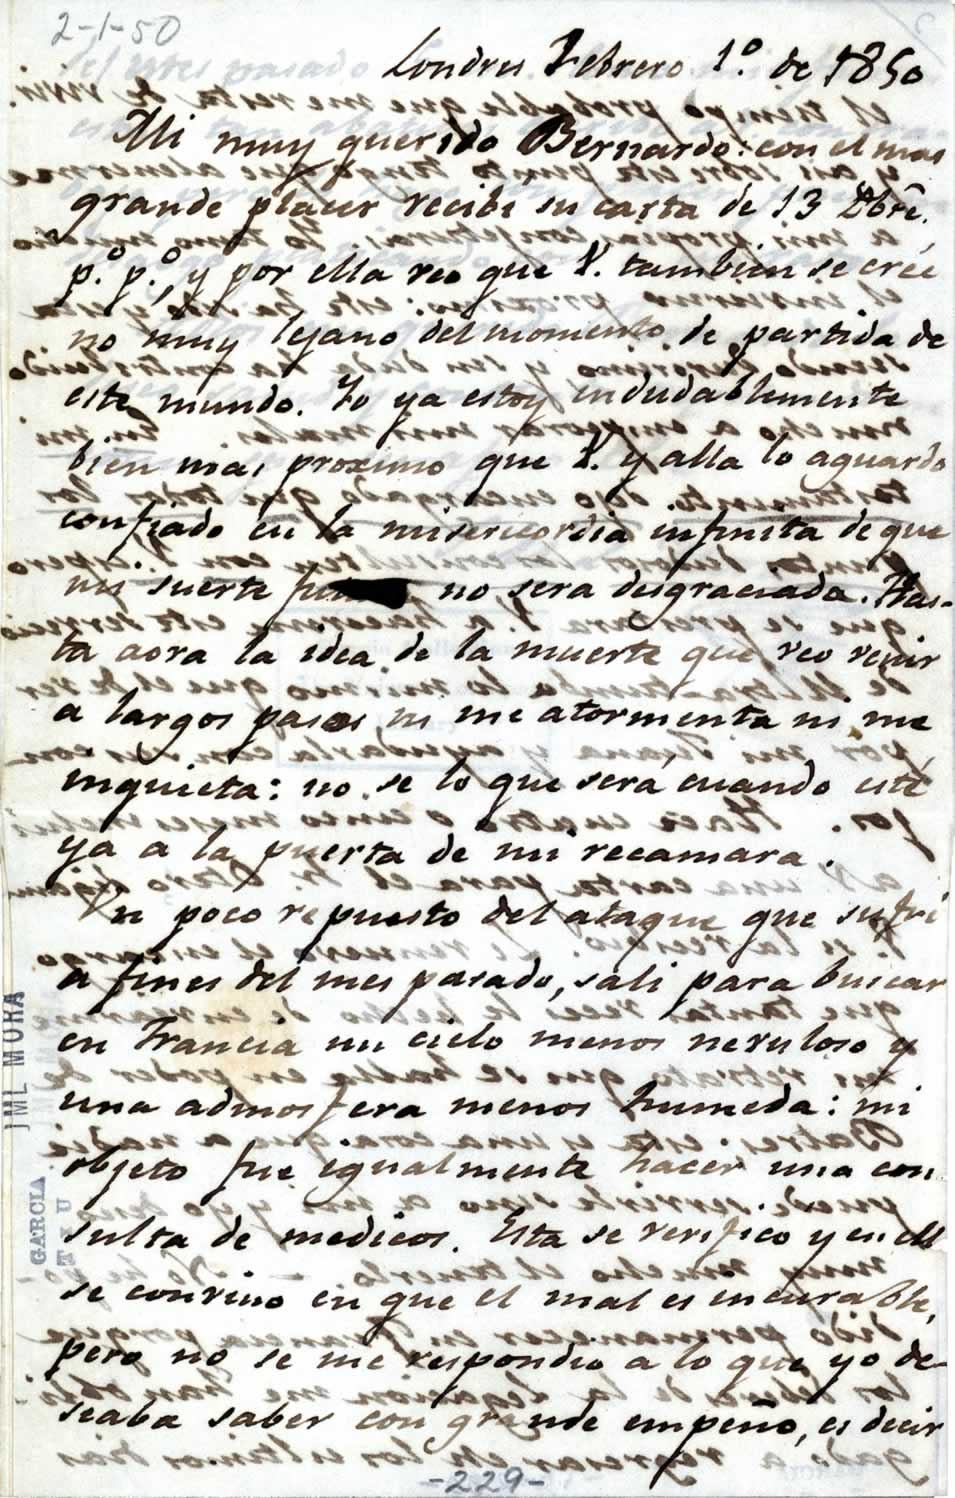 2-1-50
Londres Febrero 1º. de 1850
Mi muy querido Bernardo: con el mas
grande placer recibi su carta de 13 Dbrê.
pº. pº., y por ella veo que V. tambien se cree
no muy lejano del momento de partida de
este mundo. Yo ya estoy indudablemente
bien mas proximo que V. y alla lo aguardo
confiado en la misericordia infinita de que
mi suerte no sera desgraciada. Has-
ta aora la idea de la muerte que veo venir
a largos pasos ni me atormenta ni me
inquieta: no se lo que será cuando esté
ya a la puerta de mi recamara.
Un poco repuesto del ataque que sufri
a fines del mes pasado, sali para buscar
en Francia un cielo menos nevuloso y
una admosfera menos humeda: mi
objeto fue igualmente hacer una con
sulta de medicos. Esta se verifico y en ell
se convino en que el mal es incurable,
pero no se me respondio a lo que yo de-
seaba saber con grande empeño, es decir
-229-
JML MORA
GARCIA